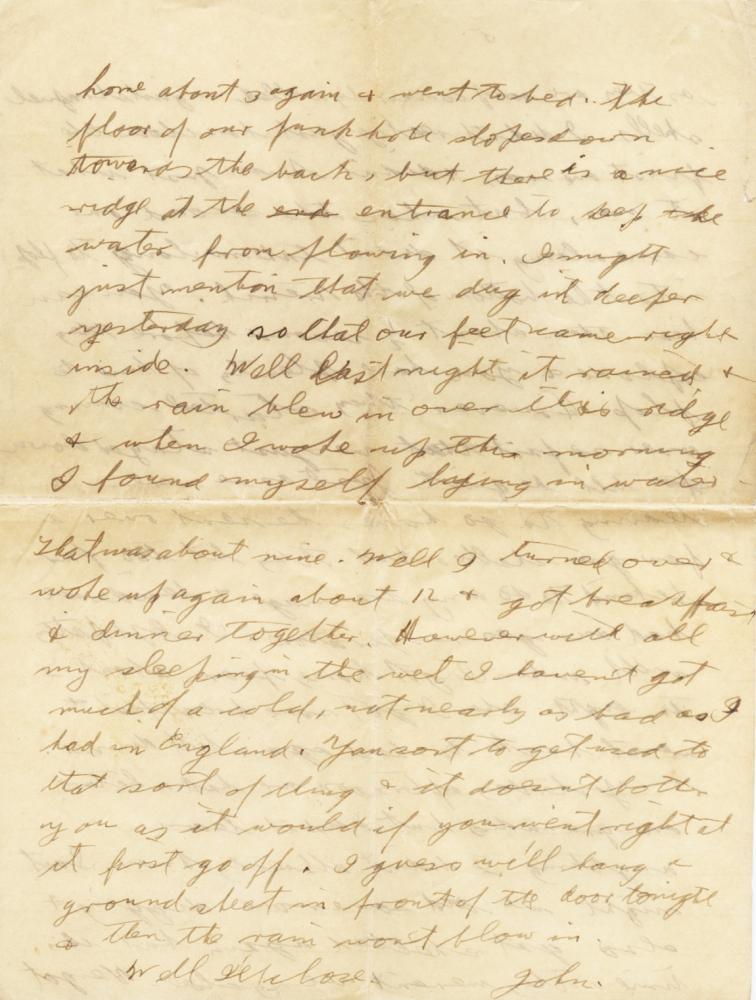 home about 3 again & went to bed. The
floor of our funk hole slopes down
towards the back, but there is a nice
ridge at the end entrance to keep the
water from flowing in. I might
just mention that we dug it deeper
yesterday so that our feet came right
inside. Well last night it rained &
the rain blew in over this ridge
& when I woke up this morning
I found myself laying in water
That was about nine. Well I turned over &
woke up again about 12 & got breakfast
& dinner together. However with all
my sleeping in the wet I havent got
much of a cold, not nearly as bad as I
had in England. You sort to get used to
that sort of thing & it doesn't bother
you as it would if you went right at
it first go off. I guess we'll hang a
ground sheet in front of the door tonight
& then the rain wont blow in.
Well I'll close. John.